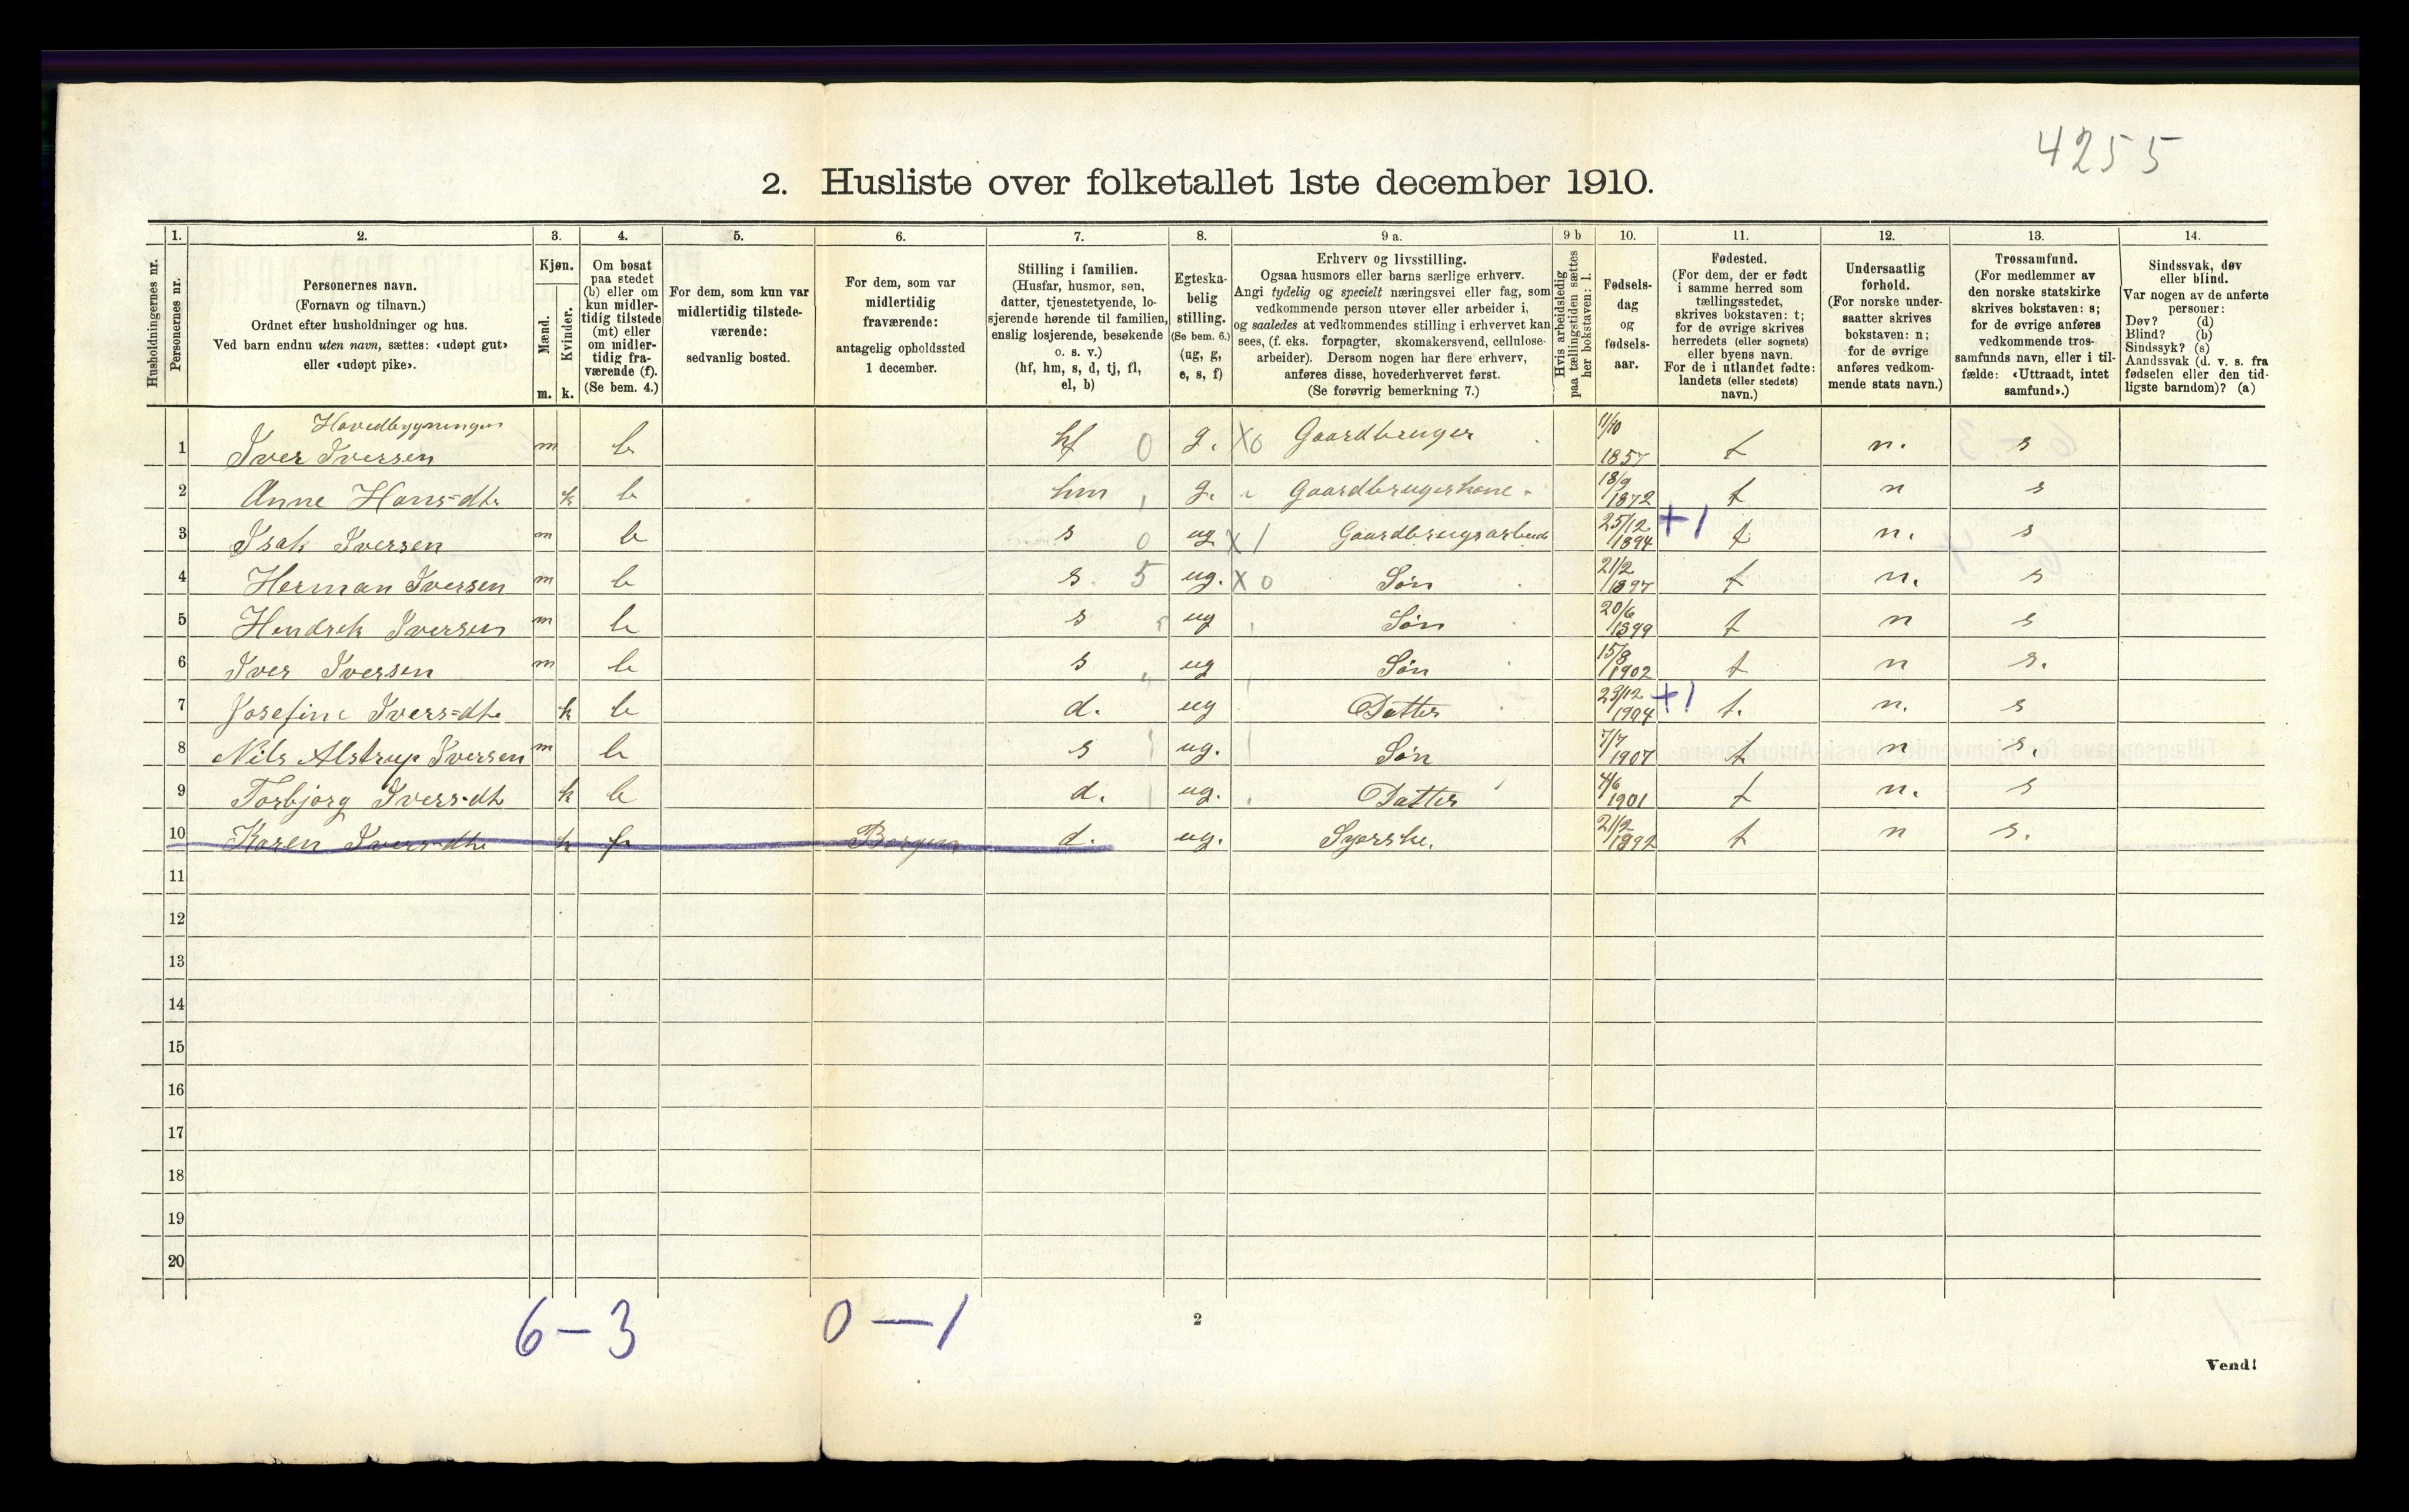 4255
2. Husliste over folketallet 1ste december 1910.
Husholdningernes nr.
1.
Personernes nr.
2.
Personernes navn.
(Fornavn og tilnavn.)
Ordnet efter husholdninger og hus.
Ved barn endnu uten navn, sættes: «udøpt gut»
eller «udøpt pike».
3.
Kjøn.
Mænd.
Kvinder.
m. k.
4.
Om bosat
paa stedet
(b) eller om
kun midler-
tidig tilstede
(mt) eller
om midler-
tidig fra-
værende (f).
(Se bem. 4.)
5.
For dem, som kun var
midlertidig tilstede-
værende:
sedvanlig bosted.
6.
For dem, som var
midlertidig
fraværende:
antagelig opholdssted
1 december.
7.
Stilling i familien.
(Husfar, husmor, søn,
datter, tjenestetyende, lo-
sjerende hørende til familien,
enslig losjerende, besøkende
o. s. v.)
(hf, hm, s, d, tj, fl,
el, b)
8.
Egteska-
belig
stilling.
(Se bem. 6.)
(ug, g,
e, s, f)
9 a.
Erhverv og livsstilling.
Ogsaa husmors eller barns særlige erhverv.
Angi tydelig og specielt næringsvei eller fag, som
vedkommende person utøver eller arbeider i,
og saaledes at vedkommendes stilling i erhvervet kan
sees, (f. eks. forpagter, skomakersvend, cellulose-
arbeider). Dersom nogen har flere erhverv,
anføres disse, hovederhvervet først.
(Se forøvrig bemerkning 7.)
9 b
Hvis arbeidsledig
paa tællingstiden sættes
her bokstaven: l.
10.
Fødsels-
dag
og
fødsels-
aar.
11.
Fødested.
(For dem, der er født
i samme herred som
tællingsstedet,
skrives bokstaven: t;
for de øvrige skrives
herredets (eller sognets)
eller byens navn.
For de i utlandet fødte:
landets (eller stedets)
navn.)
12.
Undersaatlig
forhold.
(For norske under-
saatter skrives
bokstaven: n;
for de øvrige
anføres vedkom-
mende stats navn.)
13.
Trossamfund.
(For medlemmer av
den norske statskirke
skrives bokstaven: s;
for de øvrige anføres
vedkommende tros-
samfunds navn, eller i til-
fælde: «Uttraadt, intet
samfund».)
14.
Sindssvak, døv
eller blind.
Var nogen av de anførte
personer:
Døv? (d)
Blind? (b)
Sindssyk? (s)
Aandssvak (d. v. s. fra
fødselen eller den tid-
ligste barndom)? (a)
Hovedbygningen
1 Iver Iversen m b hf 0 g. X0 Gaardbruger 11/10 1857 t n. s
2 Anne Hans-dtr k b hm g. Gaardbrugerkone 18/9 1872 t n s
3 Isak Iversen m b s 0 ug X1 Gaardbrugsarbeid 25/12 1894 +1 t n. s
4 Herman Iversen m b s 5 ug. X0 Søn 21/2 1897 t n. s
5 Hendrek Iversen m b s ug Søn 20/6 1899 t n s
6 Iver Iversen m b s " ug Søn 15/8 1902 t n s.
7 Josefine Ivers-dtr k b d. ug Datter 29/12 1904 +1 t. n. s
8 Nils Alstrup Iversen m b s ug. Søn 7/7 1907 t n s.
9 Torbjorg Ivers-dt k b d. ug. Datter 4/6 1901 t n. s
10 Karen Ivers-dtr k f Bergen d. ug. Syerske. 21/2 1892 t n s.
11
12
13
14
15
16
17
18
19
20
6 – 3 0 — 1
2
Vend!